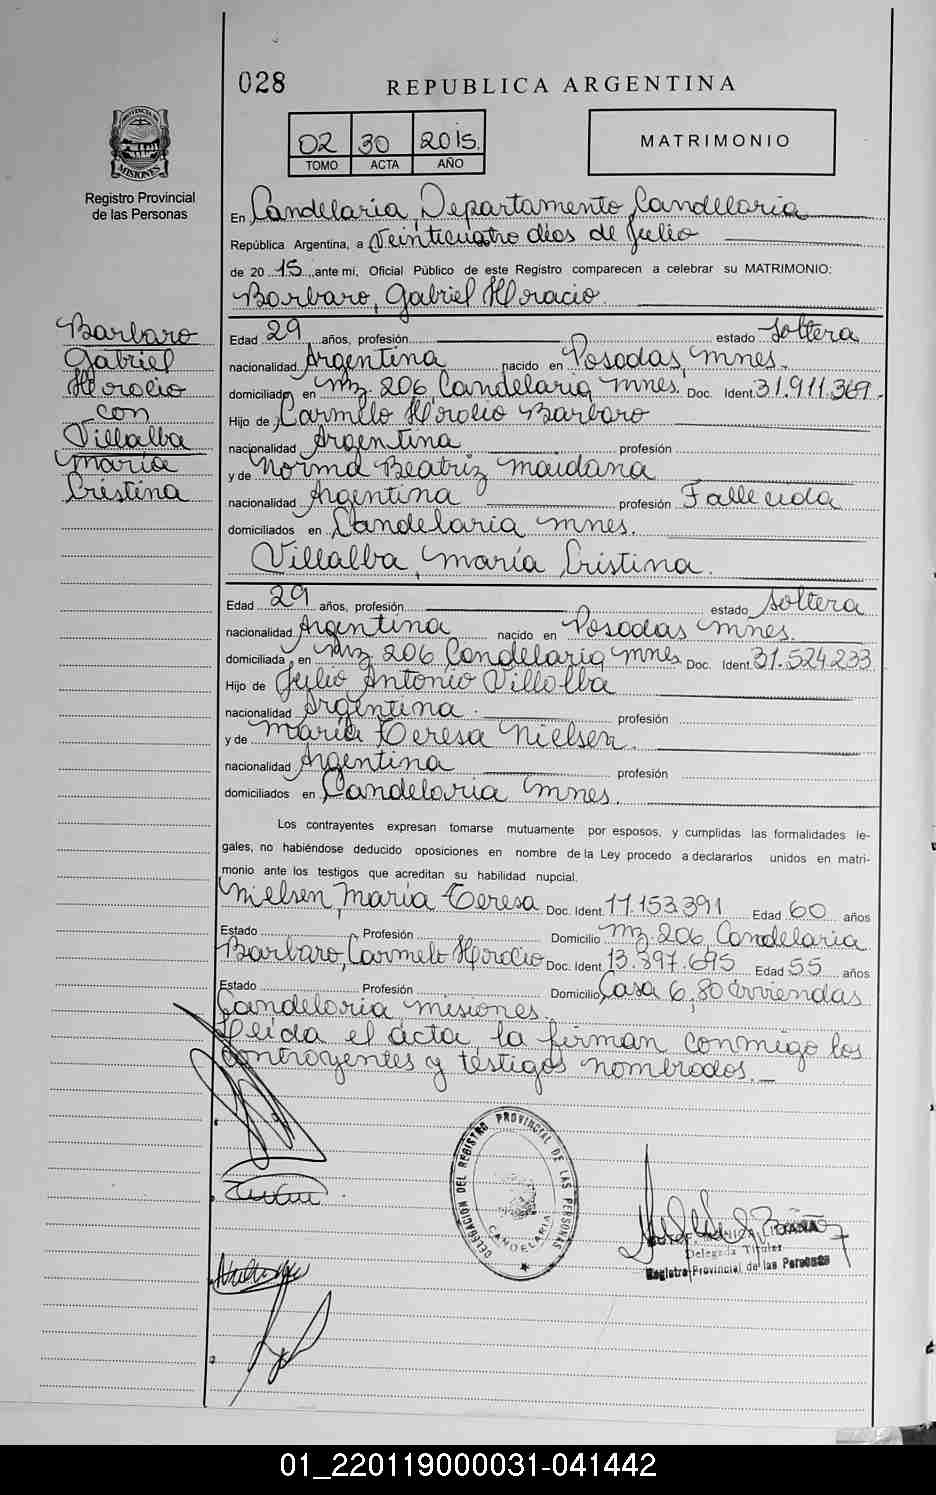 028
REPUBLICA ARGENTINA
02 30 2015.
TOMO ACTA AÑO
MATRIMONIO
PROVINCIA MISIONES
Registro Provincial
de las Personas
En Candelaria, Departamento Candelaria
República Argentina, a Veinticuatro días de Julio
de 20 15 ante mi, Oficial Público de este Registro comparecen a celebrar su MATRIMONIO:
Barbaro, Gabriel Horacio.
Barbaro
Gabriel
Horacio
con
Villalba
María
Cristina
Edad 29 años, profesión estado Soltera
nacionalidad Argentina nacido en Posadas, Mnes.
domiciliado en Mz. 206, Candelaria, Mnes. Doc. Ident. 31.911.369.
Hijo de Carmelo Horacio Barbaro
nacionalidad Argentina profesión
y de Norma Beatriz Maidana
nacionalidad Argentina profesión Fallecida
domiciliados en Candelaria Mnes.
Villalba, María Cristina.
Edad 29 años, profesión estado Soltera
nacionalidad Argentina nacido en Posadas Mnes.
domiciliada en Mz 206, Candelaria, Mnes Doc. Ident. 31.524.233
Hijo de Julio Antonio Villalba
nacionalidad Argentina. profesión
y de María Teresa Nielsen.
nacionalidad Argentina profesión
domiciliados en Candelaria Mnes.
Los contrayentes expresan tomarse mutuamente por esposos, y cumplidas las formalidades le-
gales, no habiéndose deducido oposiciones en nombre de la Ley procedo a declararlos unidos en matri-
monio ante los testigos que acreditan su habilidad nupcial.
Nielsen, María Teresa Doc. Ident. 11.153.391 Edad 60 años
Estado Profesión Domicilio Mz. 206, Candelaria
Barbaro, Carmelo Horacio Doc. Ident. 13.897.695 Edad 55 años
Estado Profesión Domicilio Casa 6, 80 viviendas
Candelaria Misiones.
Leída el acta, la firman conmigo los
contrayentes y testigos nombrados.
DELEGACION DEL REGISTRO PROVINCIAL DE LAS PERSONAS
CANDELARIA
Delegada Titular
Registro Provincial de las Personas
01_220119000031-041442